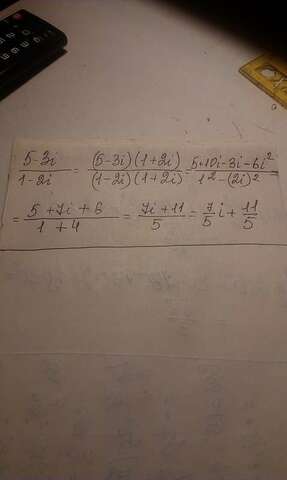 (5-3i)/(1-2i) = ((5-3i)(1+2i))/((1-2i)(1+2i)) = (5+10i-3i-6i²)/(1²-(2i)²)
= (5+7i+6)/(1+4) = (7i+11)/5 = 7/5 i + 11/5